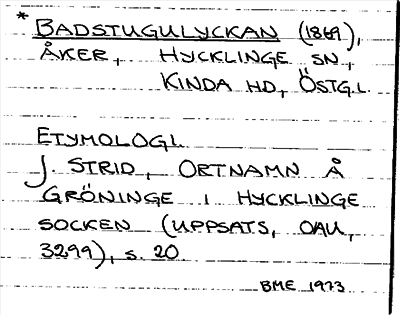 * BADSTUGULYCKAN (1869),
ÅKER, HYCKLINGE SN,
KINDA HD, ÖSTG.L.
ETYMOLOGI.
J. STRID, ORTNAMN Å
GRÖNINGE I HYCKLINGE
SOCKEN (UPPSATS, OAU,
3299), s. 20
BME 1973